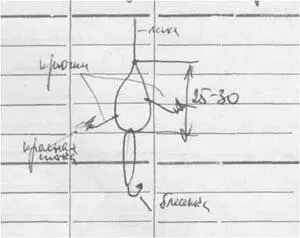 леска
крючки
25-30
красная
блесенка